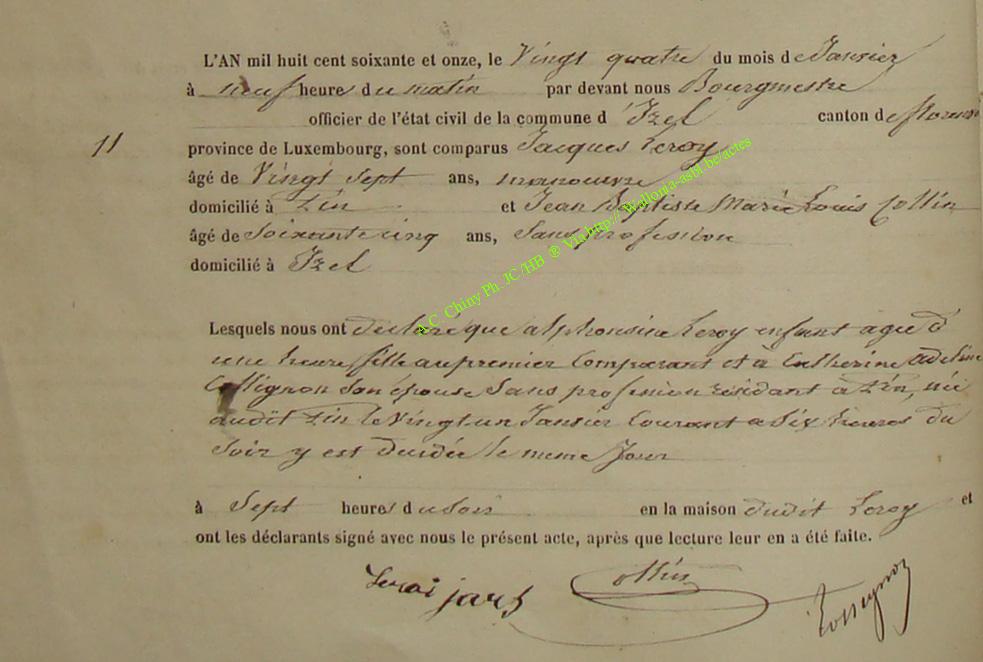 L'AN mil huit cent soixante et onze, le Vingt quatre du mois de Janvier
à neuf heure du matin par devant nous Bourgmestre
officier de l'état civil de la commune d'Izel canton de
11 province de Luxembourg, sont comparus Jacques Leroy
âgé de Vingt sept ans, manoeuvre
domicilié à et Jean Baptiste Marie Louis Collin
âgé de Soixante cinq ans, Sans profession
domicilié à Izel
Lesquels nous ont déclaré que alphonsine Leroy enfant agée d
une heure fille au premier Comparant et à Catherine adeline
Collignon Son épouse Sans profession résidant à née
audit le Vingt un Janvier Courant a Six heures du
Soir y est décédée le meme Jour
à Sept heures du Soir en la maison dudit Leroy et
ont les déclarants signé avec nous le présent acte, après que lecture leur en a été faite.
Collin
Rossignon
A.C. Chiny Ph. JC /HB ® Via http:// Wallonia-asbl.be/actes